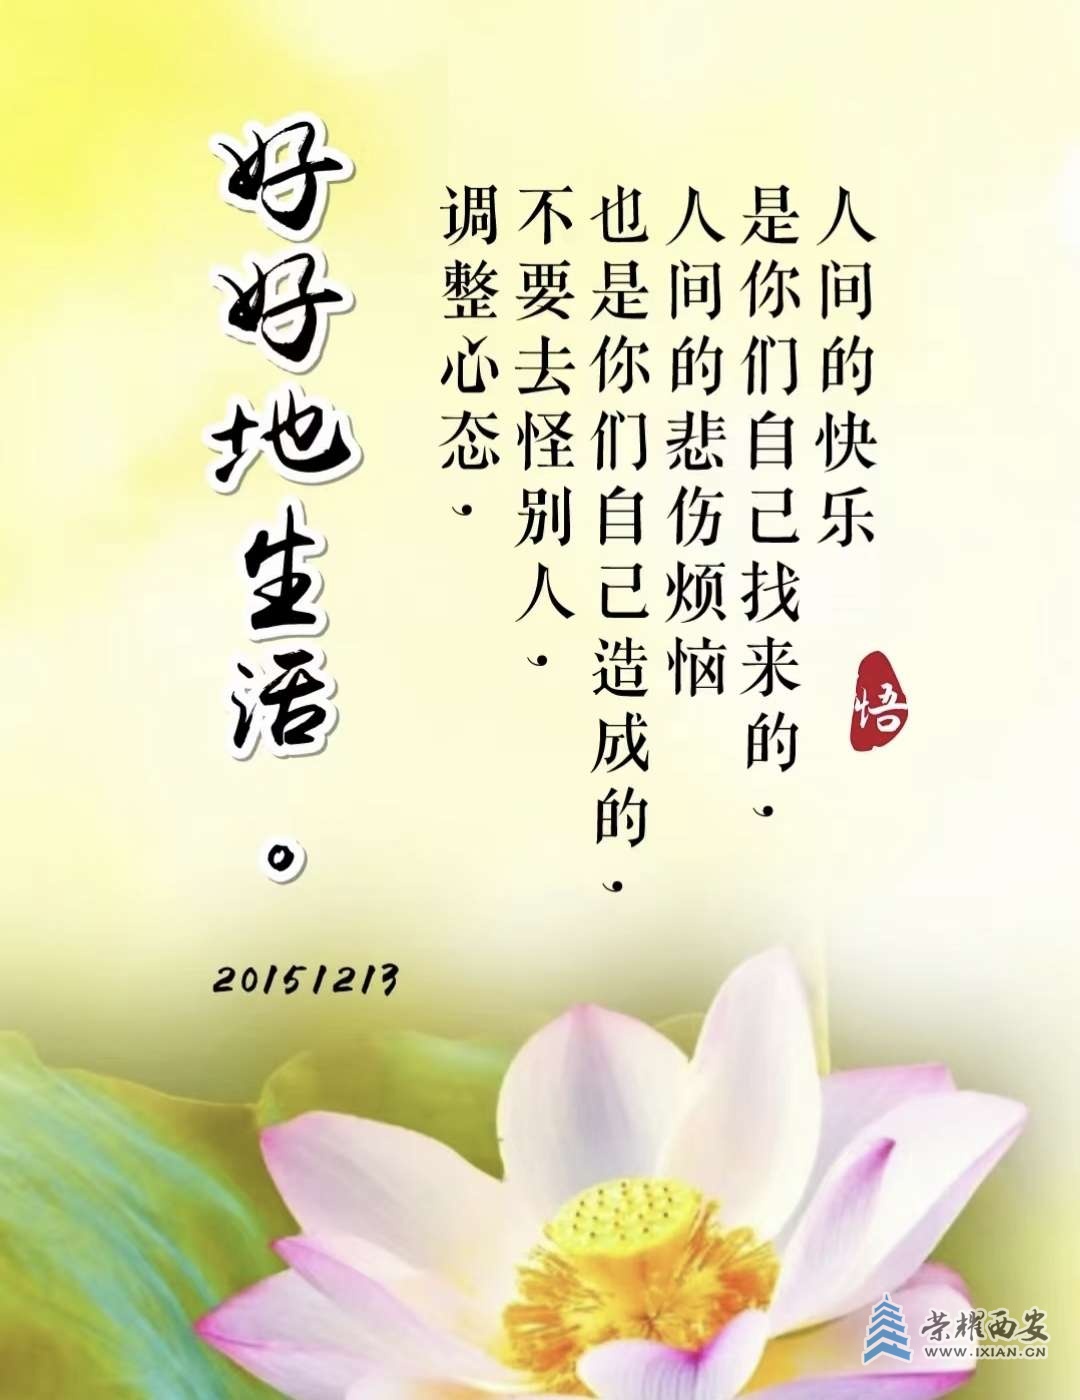 人间的快乐
是你们自己找来的，
人间的悲伤烦恼
也是你们自己造成的，
不要去怪别人，
调整心态，
好好地生活。
20151213
悟
荣耀西安
WWW.IXIAN.CN